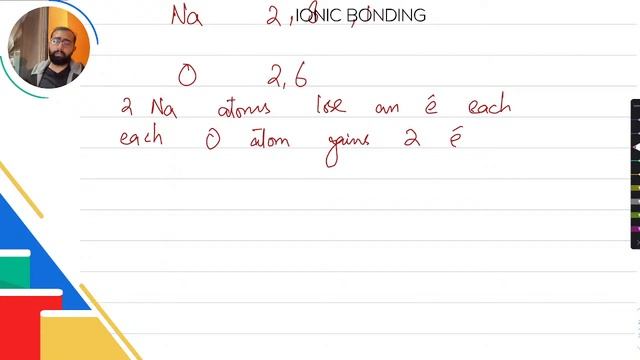 IONIC BONDING
Na 2,8,1
O 2,6
2 Na atoms lose an é each
each O atom gains 2 é